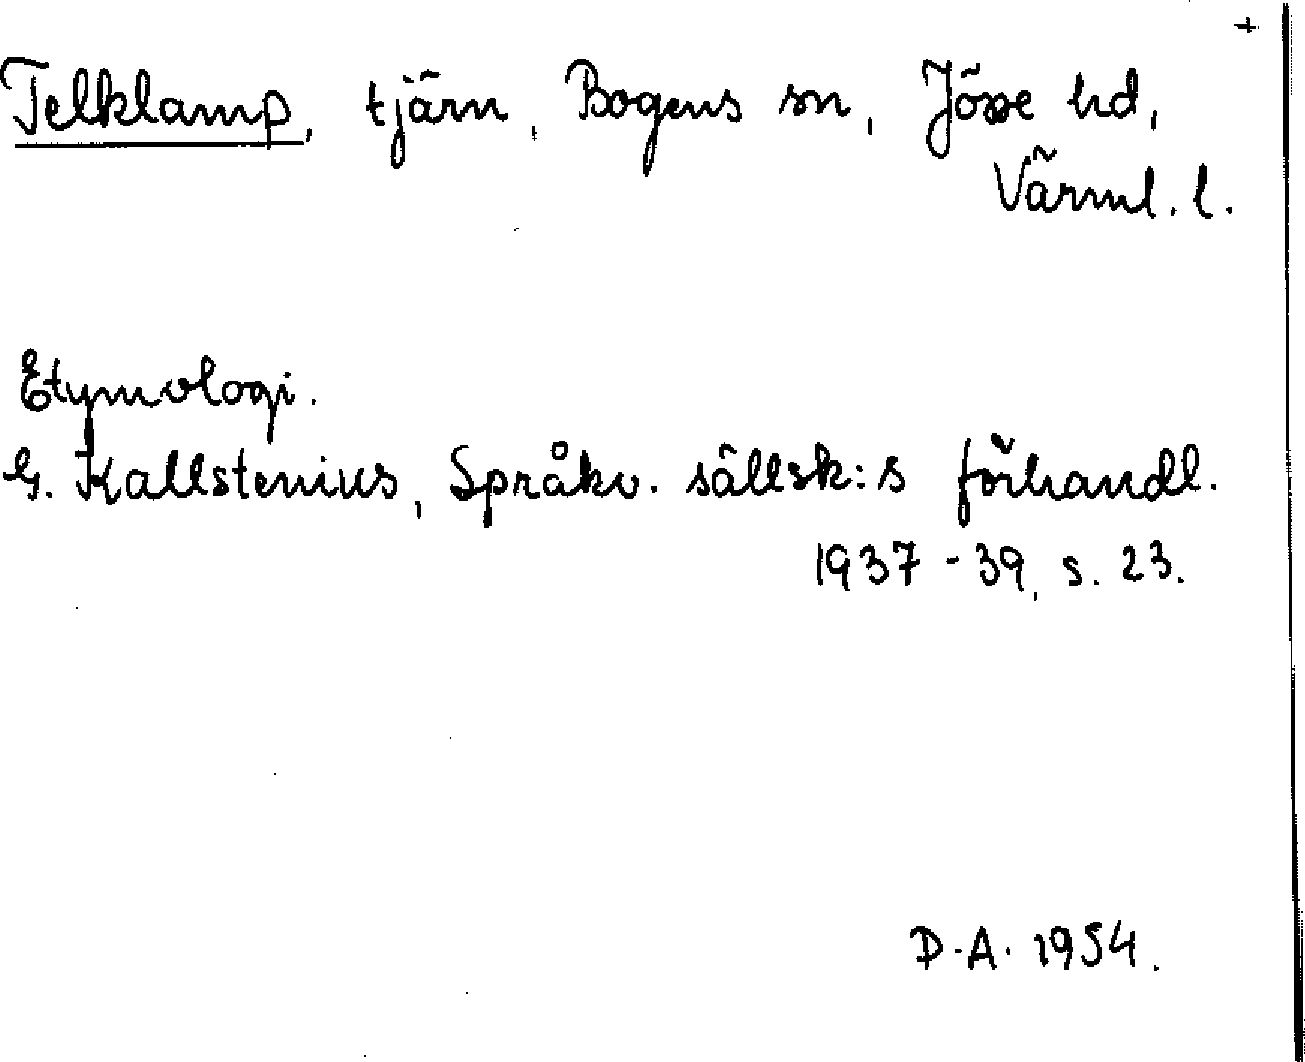 +
Telklamp, tjärn, Bogens sn, Jösse hd,
Värml. l.
Etymologi.
G. Kallstenius, Språkv. sällsk:s förhandl.
1937-39, s. 23.
D.A. 1954.